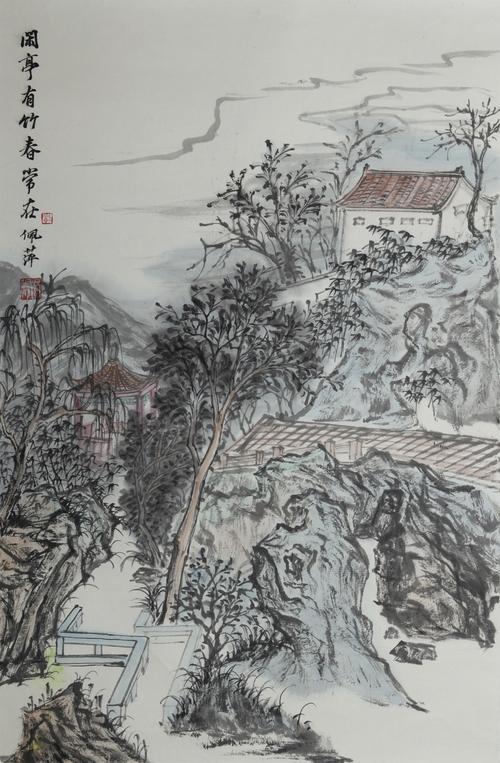 闲亭有竹春常在 佩萍